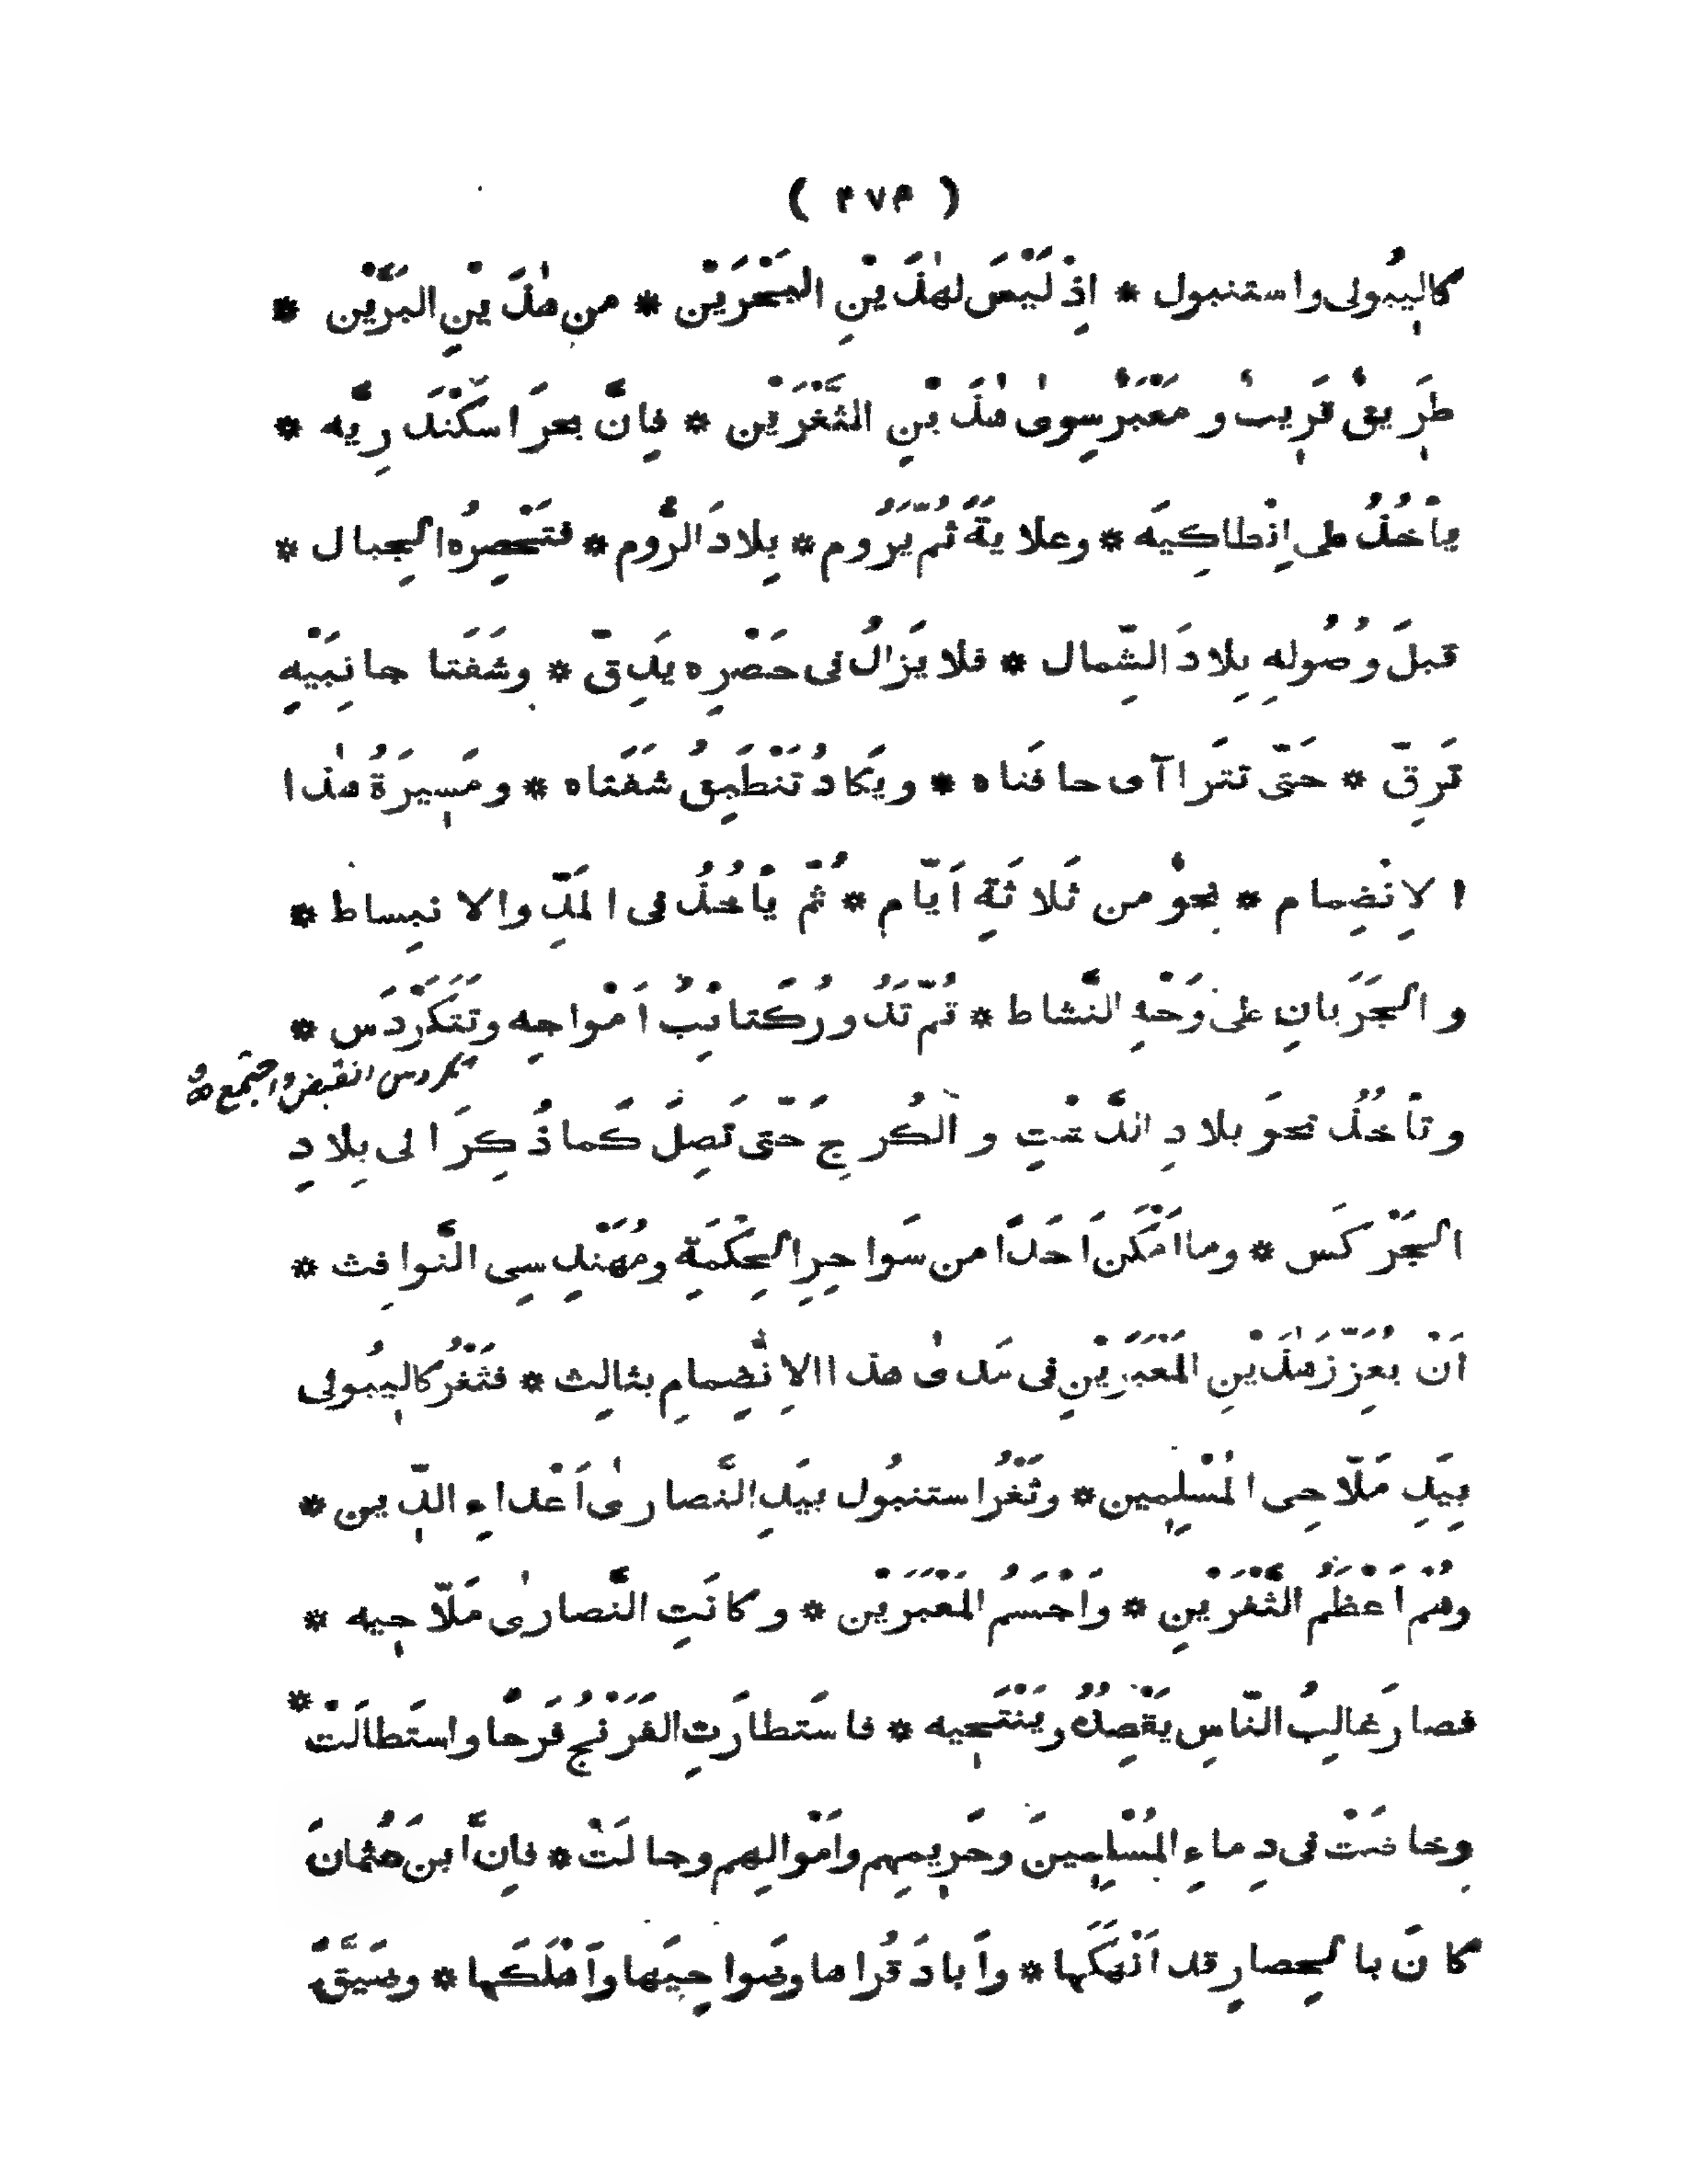 ( ٣٧٣ )
كالِيبُولى واستنبول * اِذْ لَيْسَ لِهٰذَيْنِ البَحْرَيْن * من هٰذَيْنِ البَرَّيْن *
طَرِيقٌ قَرِيبٌ ومَعْبَرٌ سِوىٰ هٰذَيْنِ الثَّغْرَيْن * فاِنَّ بحرَ اسكَنْدَرِيَّه *
يأْخُذُ على اِنْطاكِيَه * وعلايَةَ ثُمّ يَرُوم * بِلادَ الرُّوم * فتَحْصِرُه الجِبال *
قبلَ وُصُولِهِ بِلادَ الشِّمال * فلا يَزالُ فى حَصْرِه يَدِقّ * وشَفَتا جانِبَيْهِ
تَرِقّ * حَتّى تتَراآى حافتاه * ويَكادُ تَنْطَبِقُ شَفَتاه * ومَسِيرَةُ هٰذا
الاِنْضِمام * نحوٌ من ثَلاثَةِ اَيّام * ثُمّ يَأْخُذُ فى المَدِّ والانبِساط *
والجَرَيانِ على وَجْهِ النَّشاط * ثُمّ تَدُورُ كَتائِبُ اَمْواجِه وتَتَكَرْدَس *
تكردس انقبض واجتمع
وتأخُذُ نحوَ بلادِ الدَّشْتِ والكُرجِ حَتّى تَصِلَ كَما ذُكِرَ الى بِلادِ
الجَرْكَس * وما اَمْكَنَ اَحَدًا من سَواحِرِ الحِكْمَةِ ومُهَنْدِسِى النَّوافِث *
اَنْ يُعَزِّزَ هٰذَيْنِ المَعْبَرَيْنِ فى مَدىٰ هذا الاِنْضِمامِ بثالِث * فثَغْرُ كالِيبُولى
بِيَدِ مَلّاحِى المُسْلِمِين * وثَغْرُ استنبُول بِيَدِ النَّصارىٰ اَعْداءِ الدِّين *
وهُم اَعْظَمُ الثَّغْرَيْنِ * واَجْسَمُ المَعْبَرَيْن * وكانَتِ النَّصارىٰ مَلّاحِيه *
فصارَ غالِبُ النّاسِ يَقْصِدُه ويَنْتَحِيه * فاستَطارَتِ الفَرَنْجُ فَرَحًا واستَطالَتْ *
وخاضَتْ فى دِماءِ المُسْلِمِينَ وحَرِيمِهِم واَمْوالِهِم وجالَتْ * فاِنَّ ابنَ عُثمانَ
كانَ بالحِصارِ قد اَنْهَكَها * واَبادَ قُراها وضَواحِيَها واَهْلَكَها * وضَيَّقَ